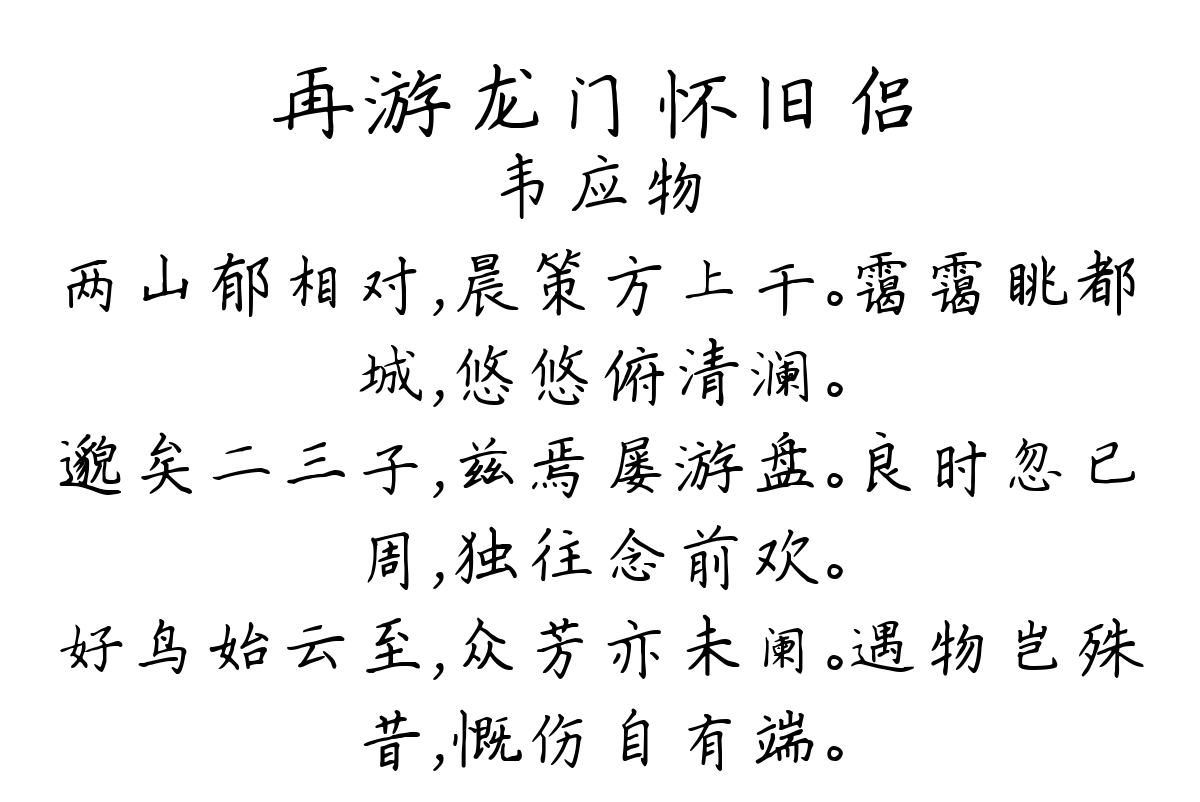 再游龙门怀旧侣
韦应物
两山郁相对,晨策方上干。霭霭眺都
城,悠悠俯清澜。
邈矣二三子,兹焉屡游盘。良时忽已
周,独往念前欢。
好鸟始云至,众芳亦未阑。遇物岂殊
昔,慨伤自有端。